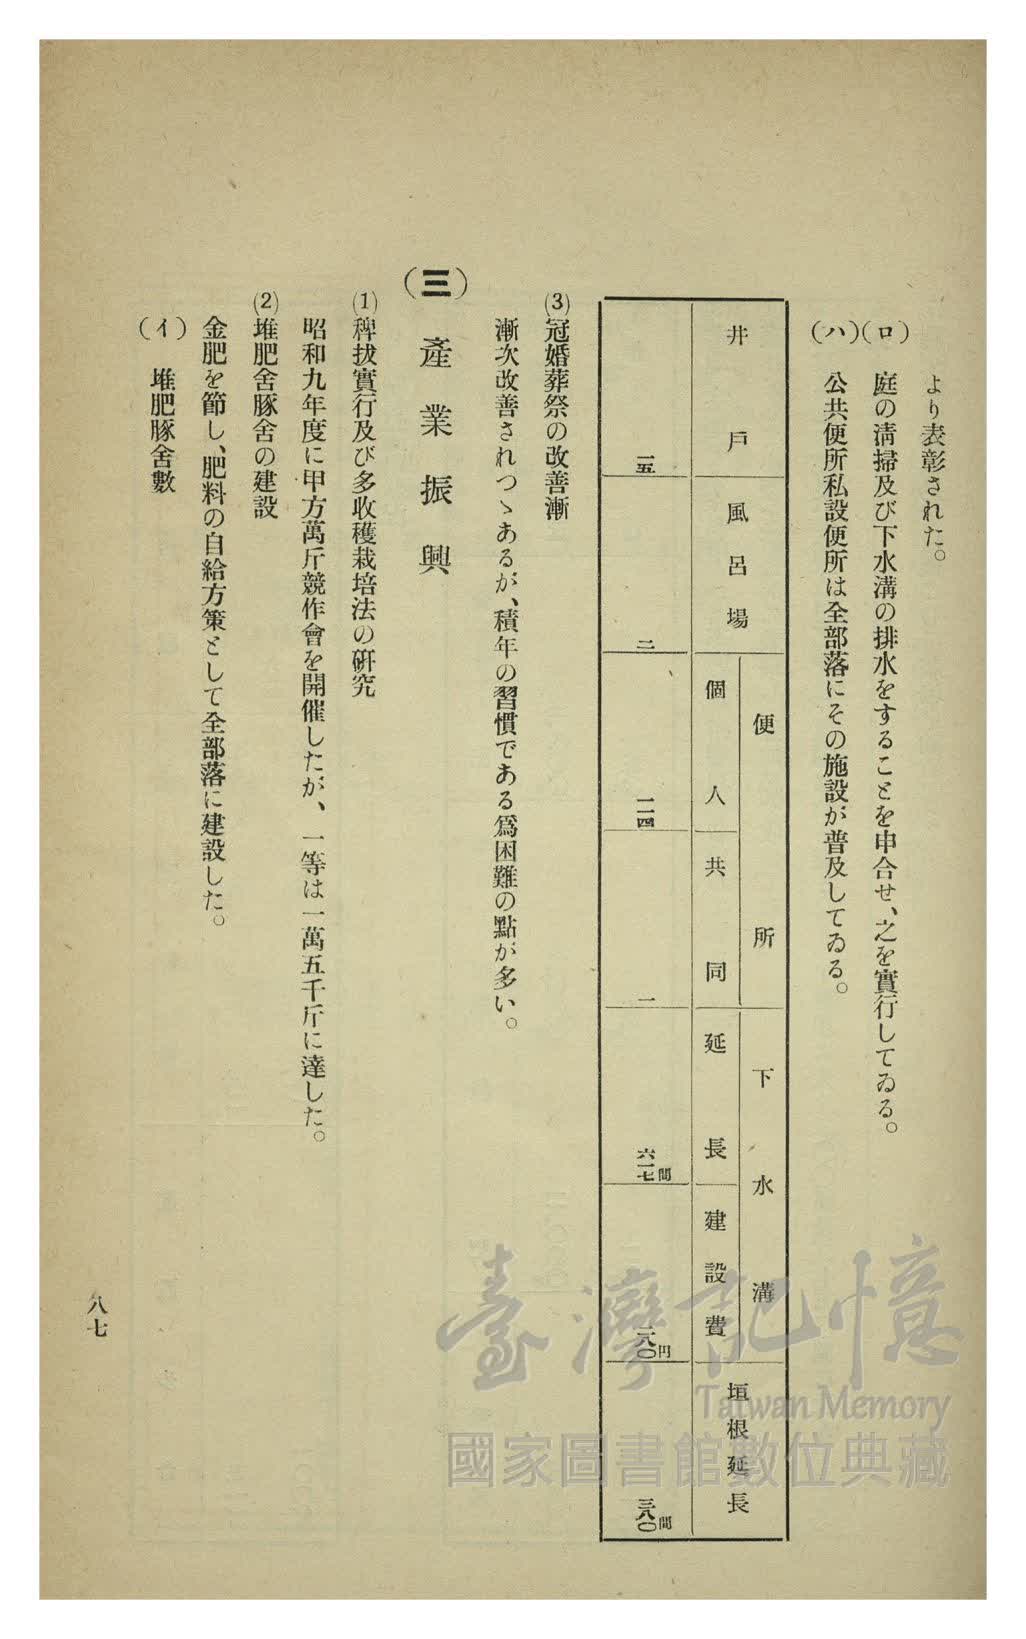 より表彰された。
(ロ) 庭の淸掃及び下水溝の排水をすることを申合せ、之を實行してゐる。
(ハ) 公共便所私設便所は全部落にその施設が普及してゐる。
井戸 風呂場 便所 下水溝 垣根延長
個人 共同 延長 建設費
一五 二 一一四 一 六一七間 一八〇円 三八〇間
(3) 冠婚葬祭の改善漸
漸次改善されつゝあるが、積年の習慣である爲困難の點が多い。
(三) 產業振興
(1) 稗拔實行及び多收穫栽培法の硏究
昭和九年度に甲方萬斤競作會を開催したが、一等は一萬五千斤に達した。
(2) 堆肥舍豚舍の建設
金肥を節し、肥料の自給方策として全部落に建設した。
(イ) 堆肥豚舍數
八七
臺灣記憶
Taiwan Memory
國家圖書館數位典藏